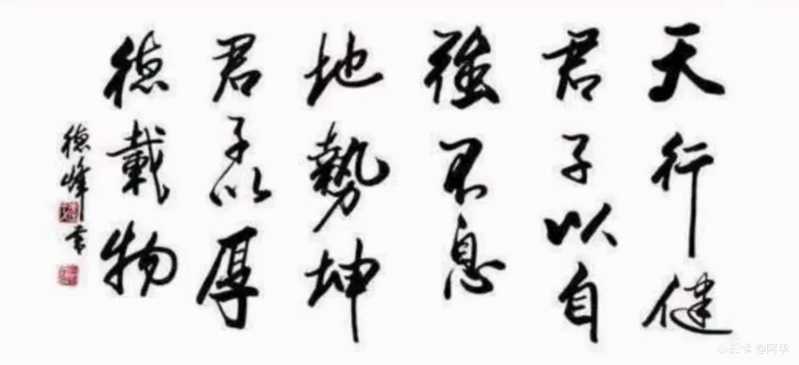 天行健
君子以自
强不息
地勢坤
君子以厚
德載物
德峰書